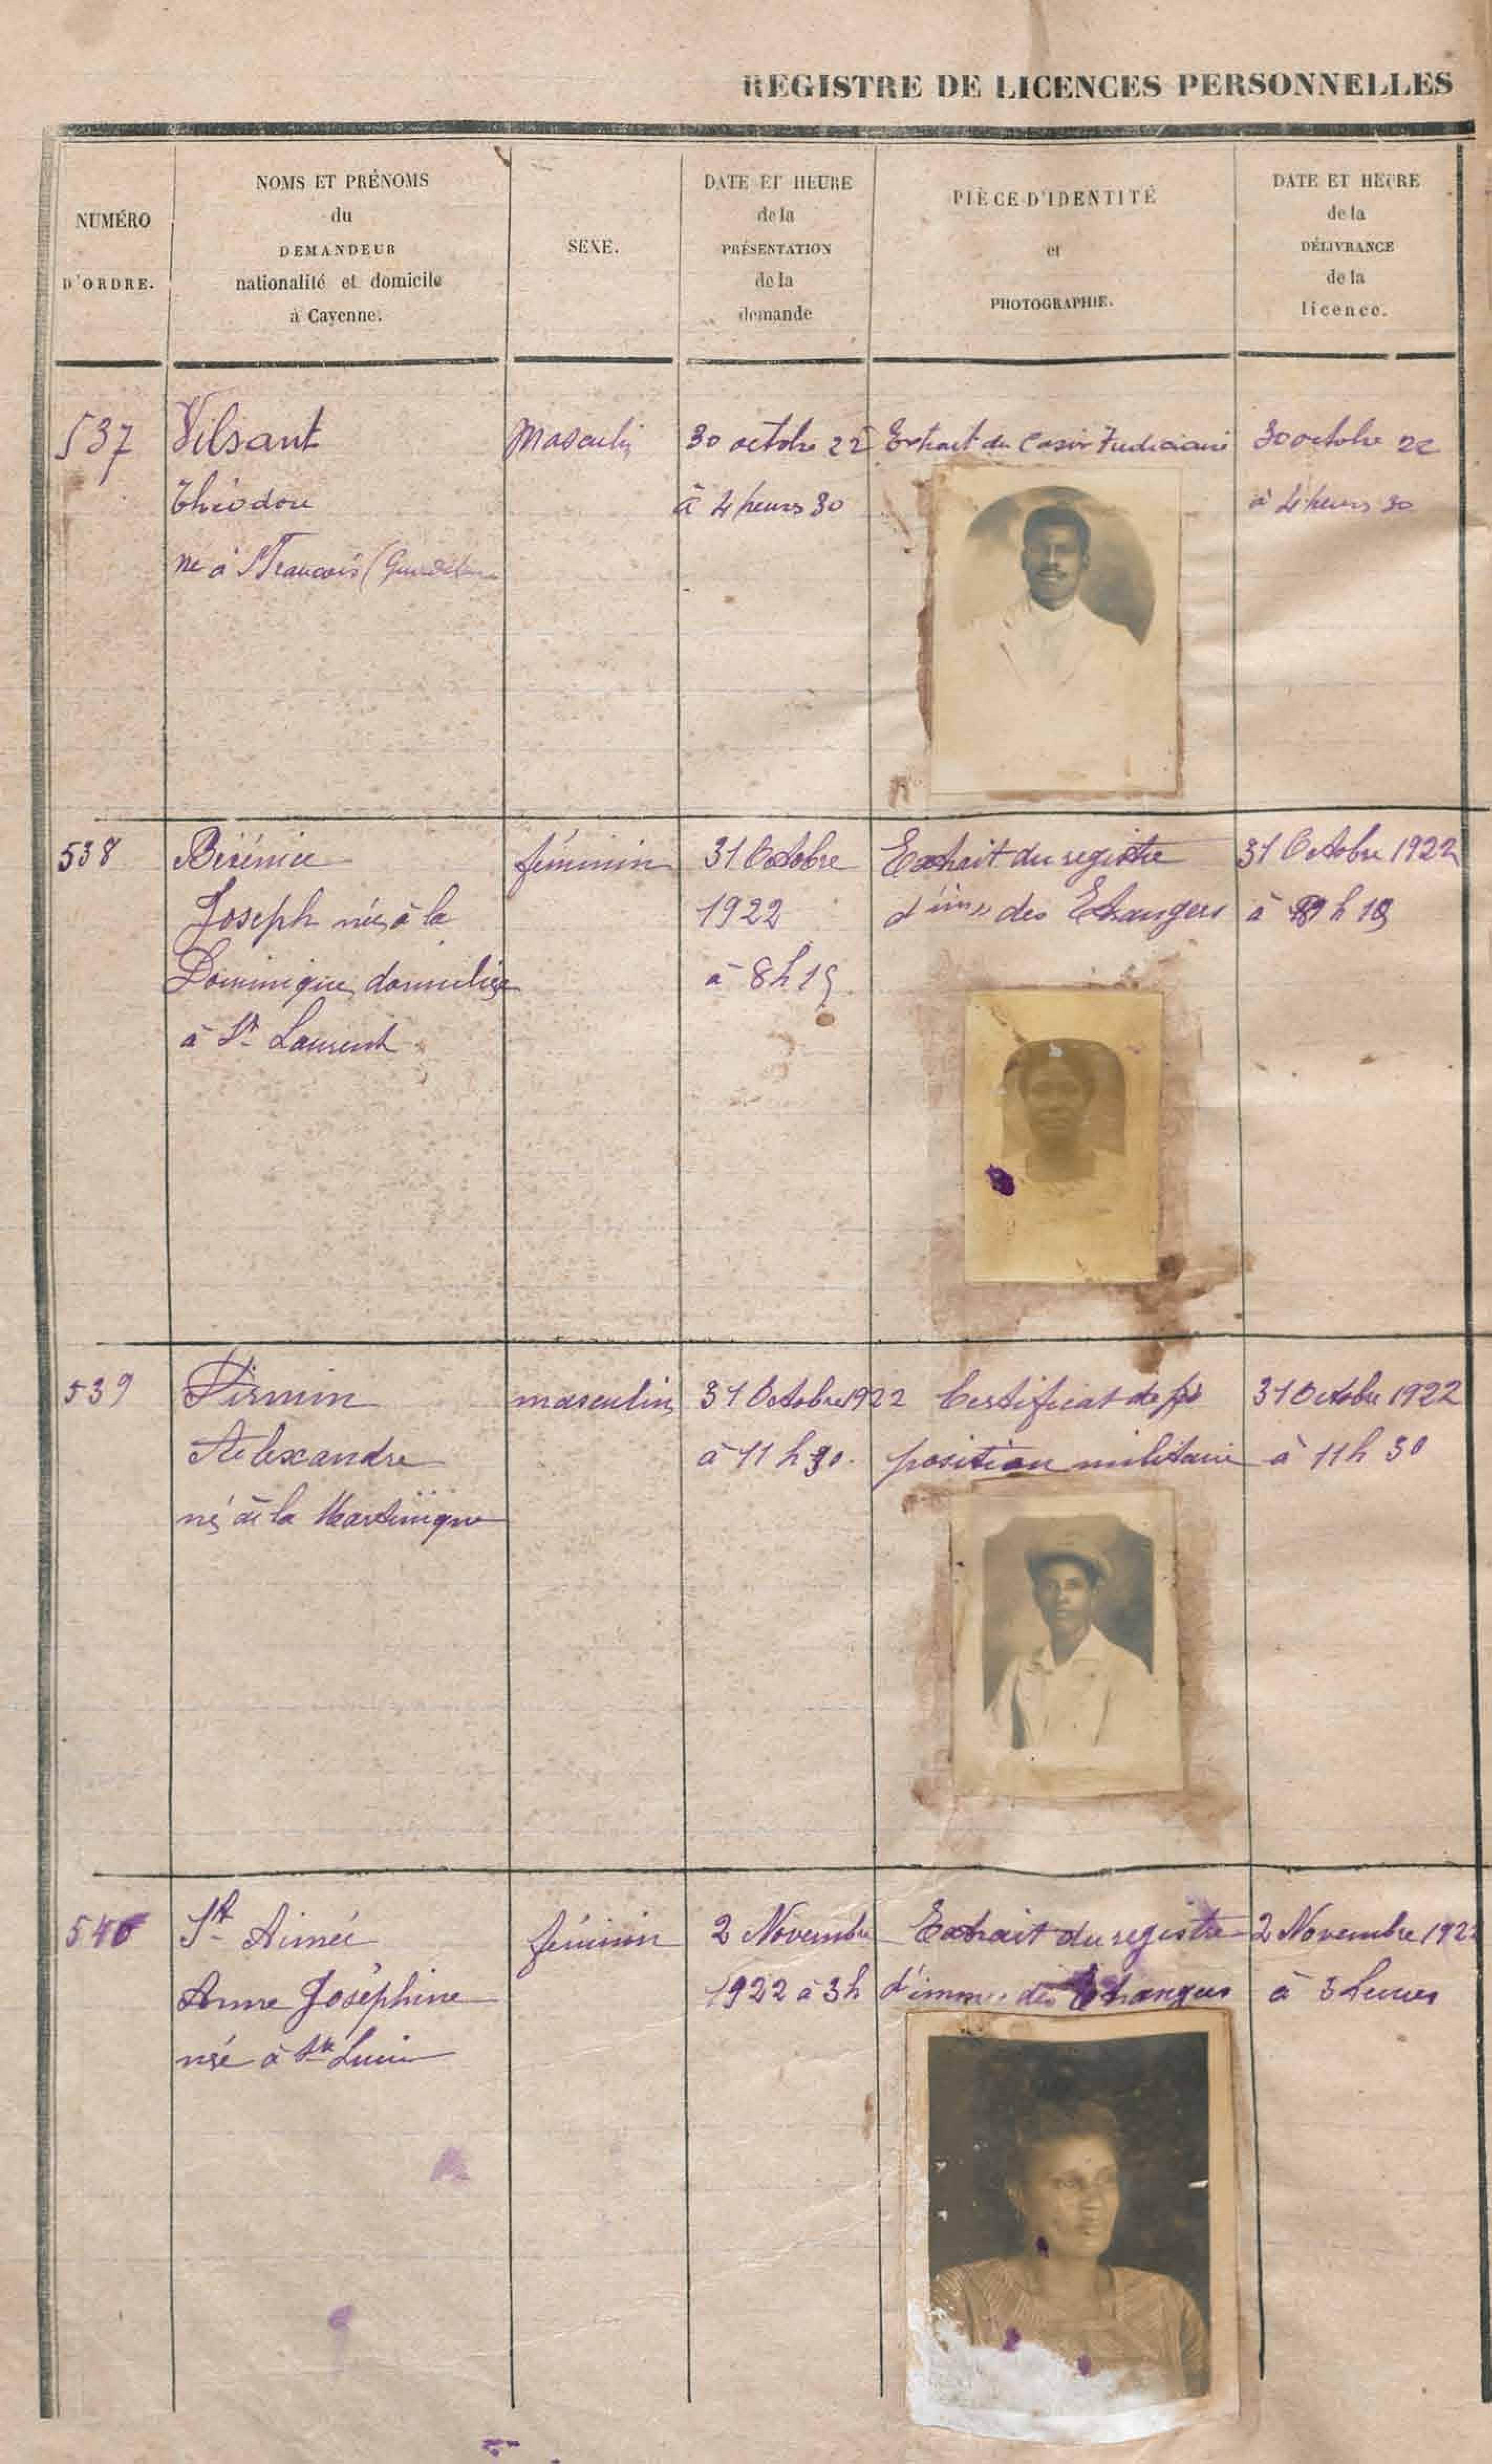 REGISTRE DE LICENCES PERSONNELLES
NUMÉRO
D'ORDRE.
NOMS ET PRÉNOMS
du
DEMANDEUR
nationalité et domicile
à Cayenne.
SEXE.
DATE ET HEURE
de la
PRÉSENTATION
de la
demande
PIÈCE D'IDENTITÉ
et
PHOTOGRAPHIE.
DATE ET HEURE
de la
DÉLIVRANCE
de la
licence.
537
Vilsant
Théodore
né à St François (Guadeloupe
Masculin
30 octobre 22
à 4 heures 30
Extrait du Casier Judiciaire
30 octobre 22
à 4 heures 30
538
Bérénice
Joseph née à la
Dominique domiciliée
à St Laurent
féminin
31 Octobre
1922
à 8h15
Extrait du registre
d'imm des Etrangers
31 Octobre 1922
à h 15
539
Firmin
Alexandre
né à la Martinique
masculin
31 Octobre 1922
à 11 h 30.
Certificat de
position militaire
31 Octobre 1922
à 11h 30
540
St Aimée
Anne Joséphine
née à Ste Lucie
féminin
2 Novembre
1922 à 3h
Extrait du registre
d'imm des Etrangers
2 Novembre 1922
à 3 heures